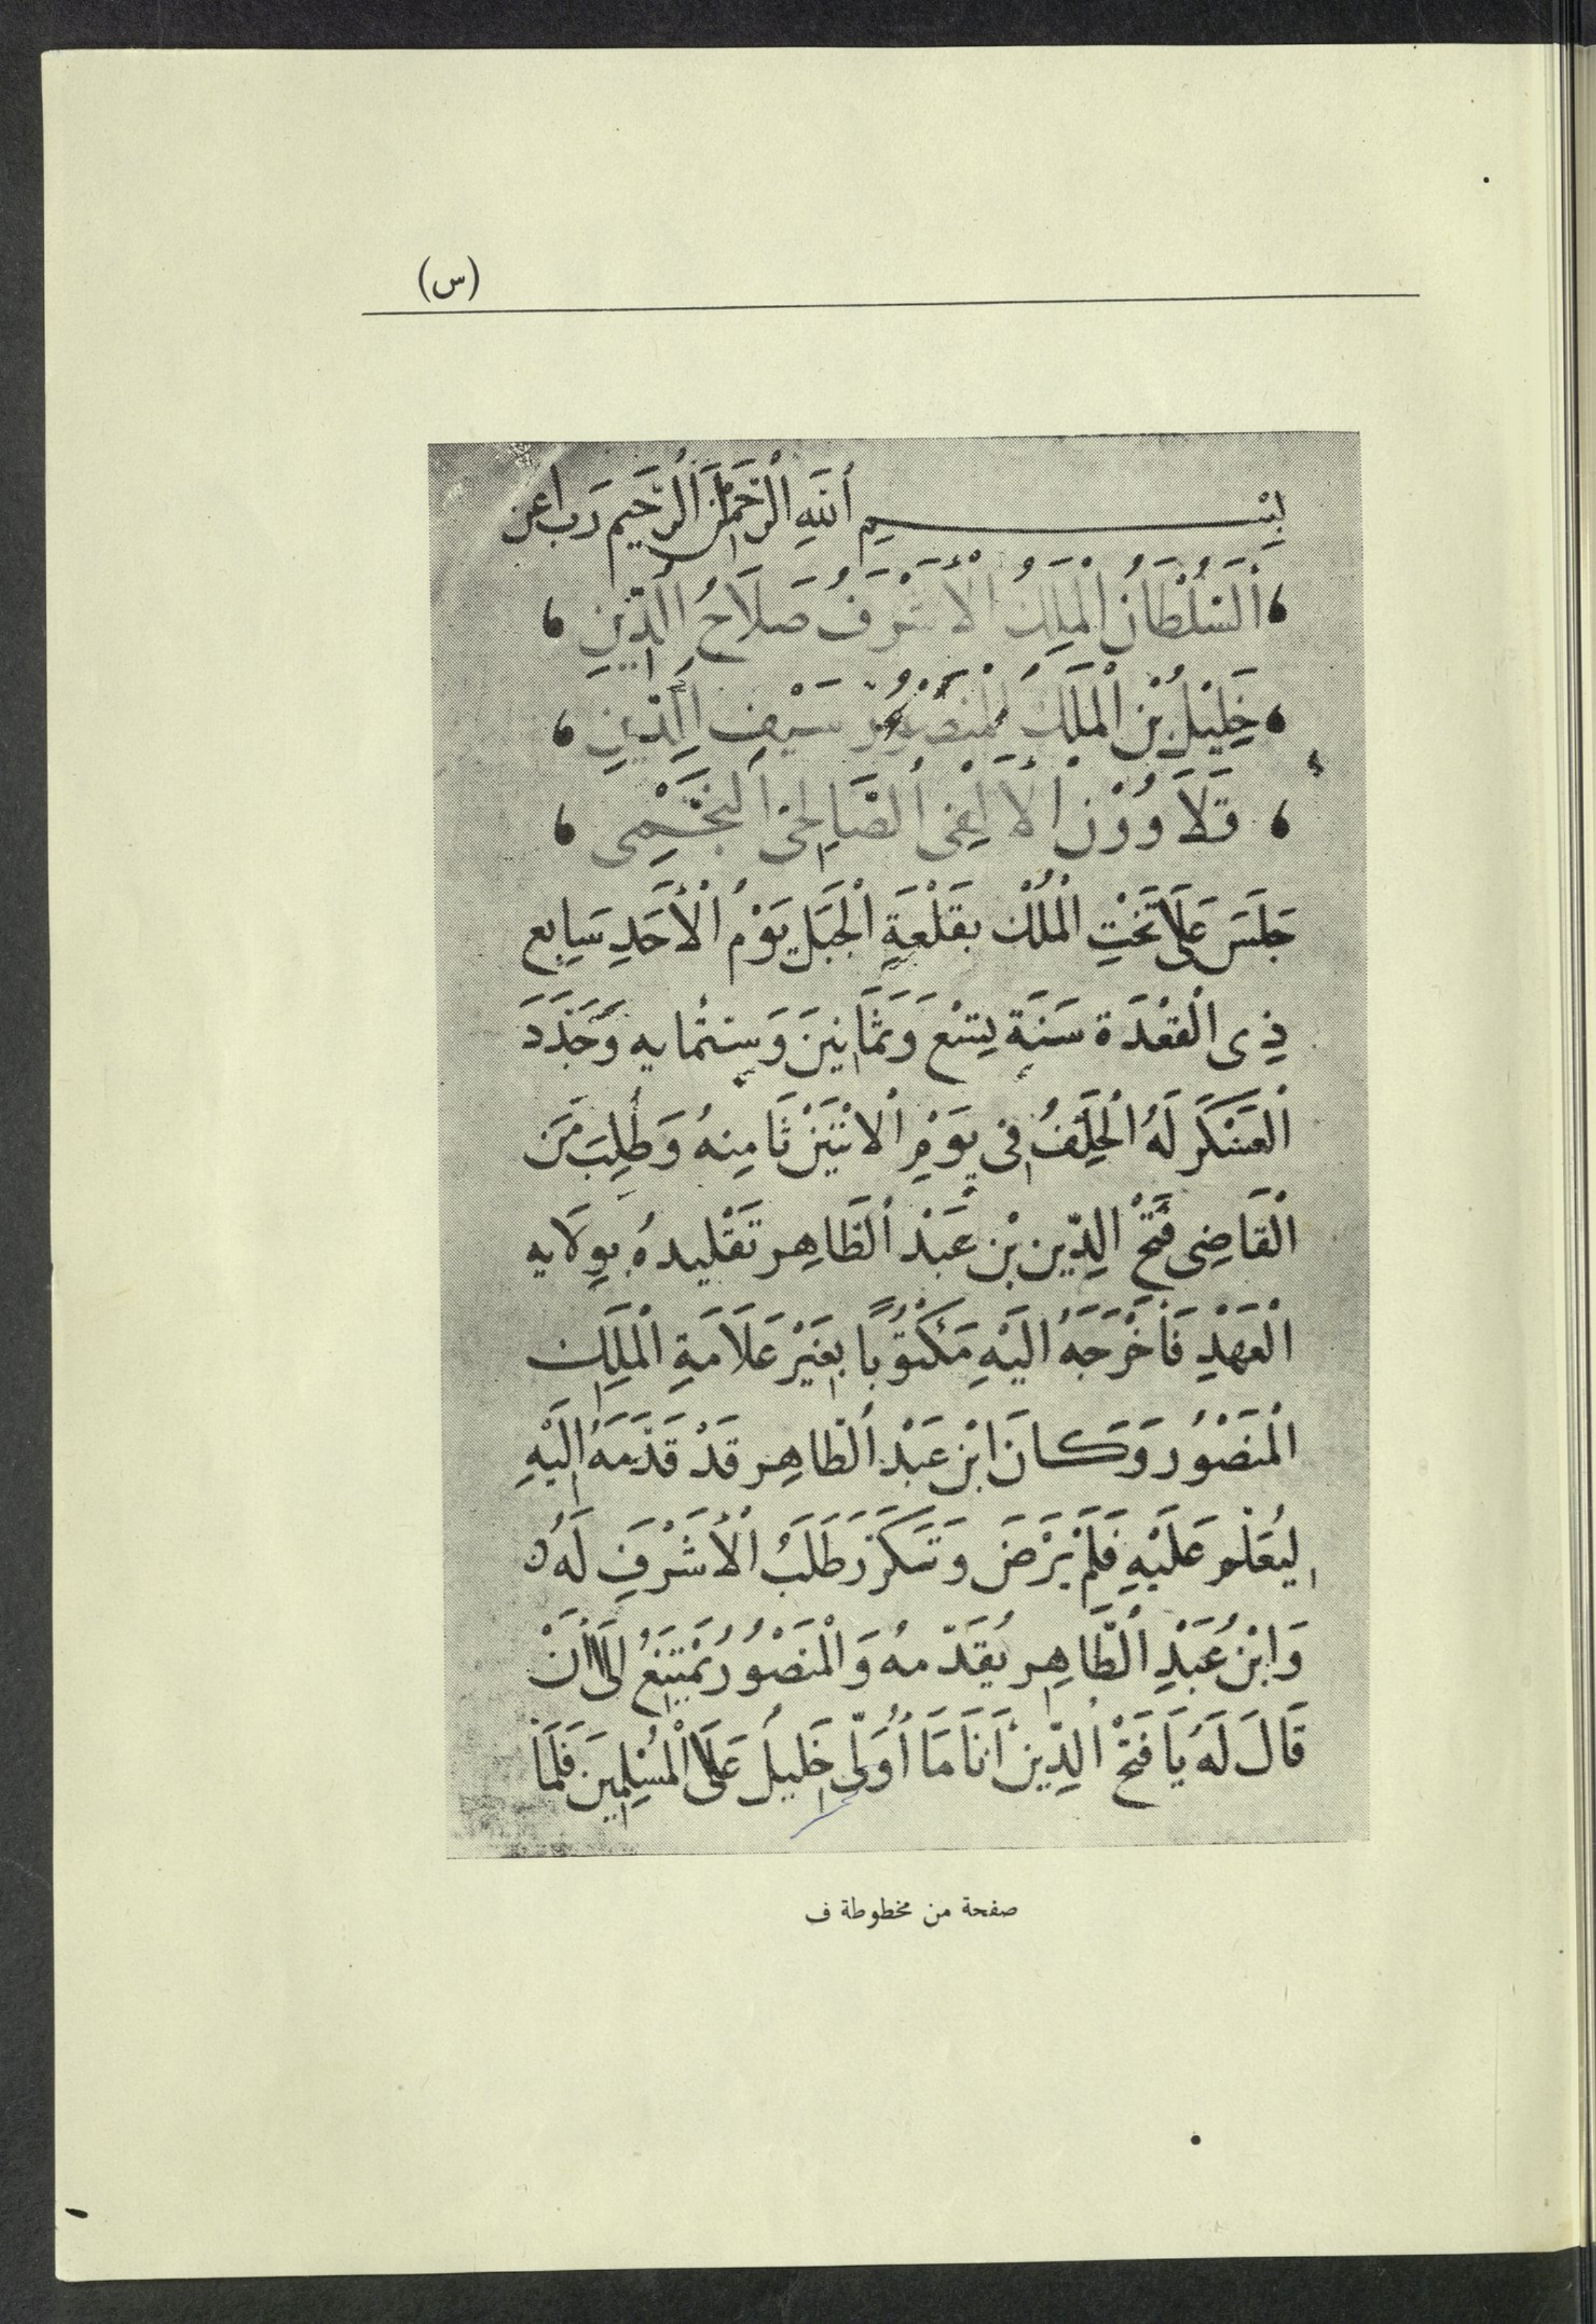 (س)
بِسْـــــــمِ اللهِ الْرَّحْمَنِ الْرَّحِيمِ رَبِ اعن
، اَلسُلْطَانُ الْمَلِكُ الْأَشْرَفُ صَلَاحُ الدِّينِ ،
، خَلِيْلُ بْن الْمَلِكُ الْمَنْصُوْرُ سَيْفِ الدِّينِ ،
، قَلَاَوُوْن الْأَلْفِى الصَّالِحِىّ النَّجْمِى ،
جَلَسَ عَلَى تَخْتِ الْمُلْك بقَلْعَةِ الْجَبَل يَوْمُ الْأَحَدِ سَابِع
ذِى الْقَعْدَة سَنَةِ تِسْع وَثَمَانِينَ وَسِتْمايه وَجَدَّدَ
الْعَسْكَر لَهُ الْحَلِفُ فِى يَوْمِ الْاثْنَيْن ثَامِنهُ وَطُلِبَ مَنَ
الْقَاضِى فَتْحُ الدِّين بْن عَبْدُ الظَاهِر تَقْليدهُ بِوِلَايه
الْعَهْدِ فَأَخْرَجَهُ الَيْهِ مَكْتُوْبًا بِغَيْر عَلَامَةِ الْمَلِك
الْمَنصُوْر وَكَانَ ابْن عَبْدُ الظاهِر قَدْ قَدَّمَهُ الَيْهِ
لِيُعَلْم عَلَيْهِ فَلَمْ يَرْضَ وَتَكَرَّرَ طَلَبُ الْأَشْرَفِ لَهُ ٥
وَابْنُ عَبْدِ الظَّاهِر يُقَدّمهُ وَالْمَنصُوْرُ يَمْتَنِعُ إلَى أَنْ
قَالَ لَهُ يَا فَتْحُ الدِّينْ أَنَا مَا أُوَلّى خَلِيلُ عَلَى الْمُسْلِمِينَ فَلَمَا
صفحة من مخطوطة ف